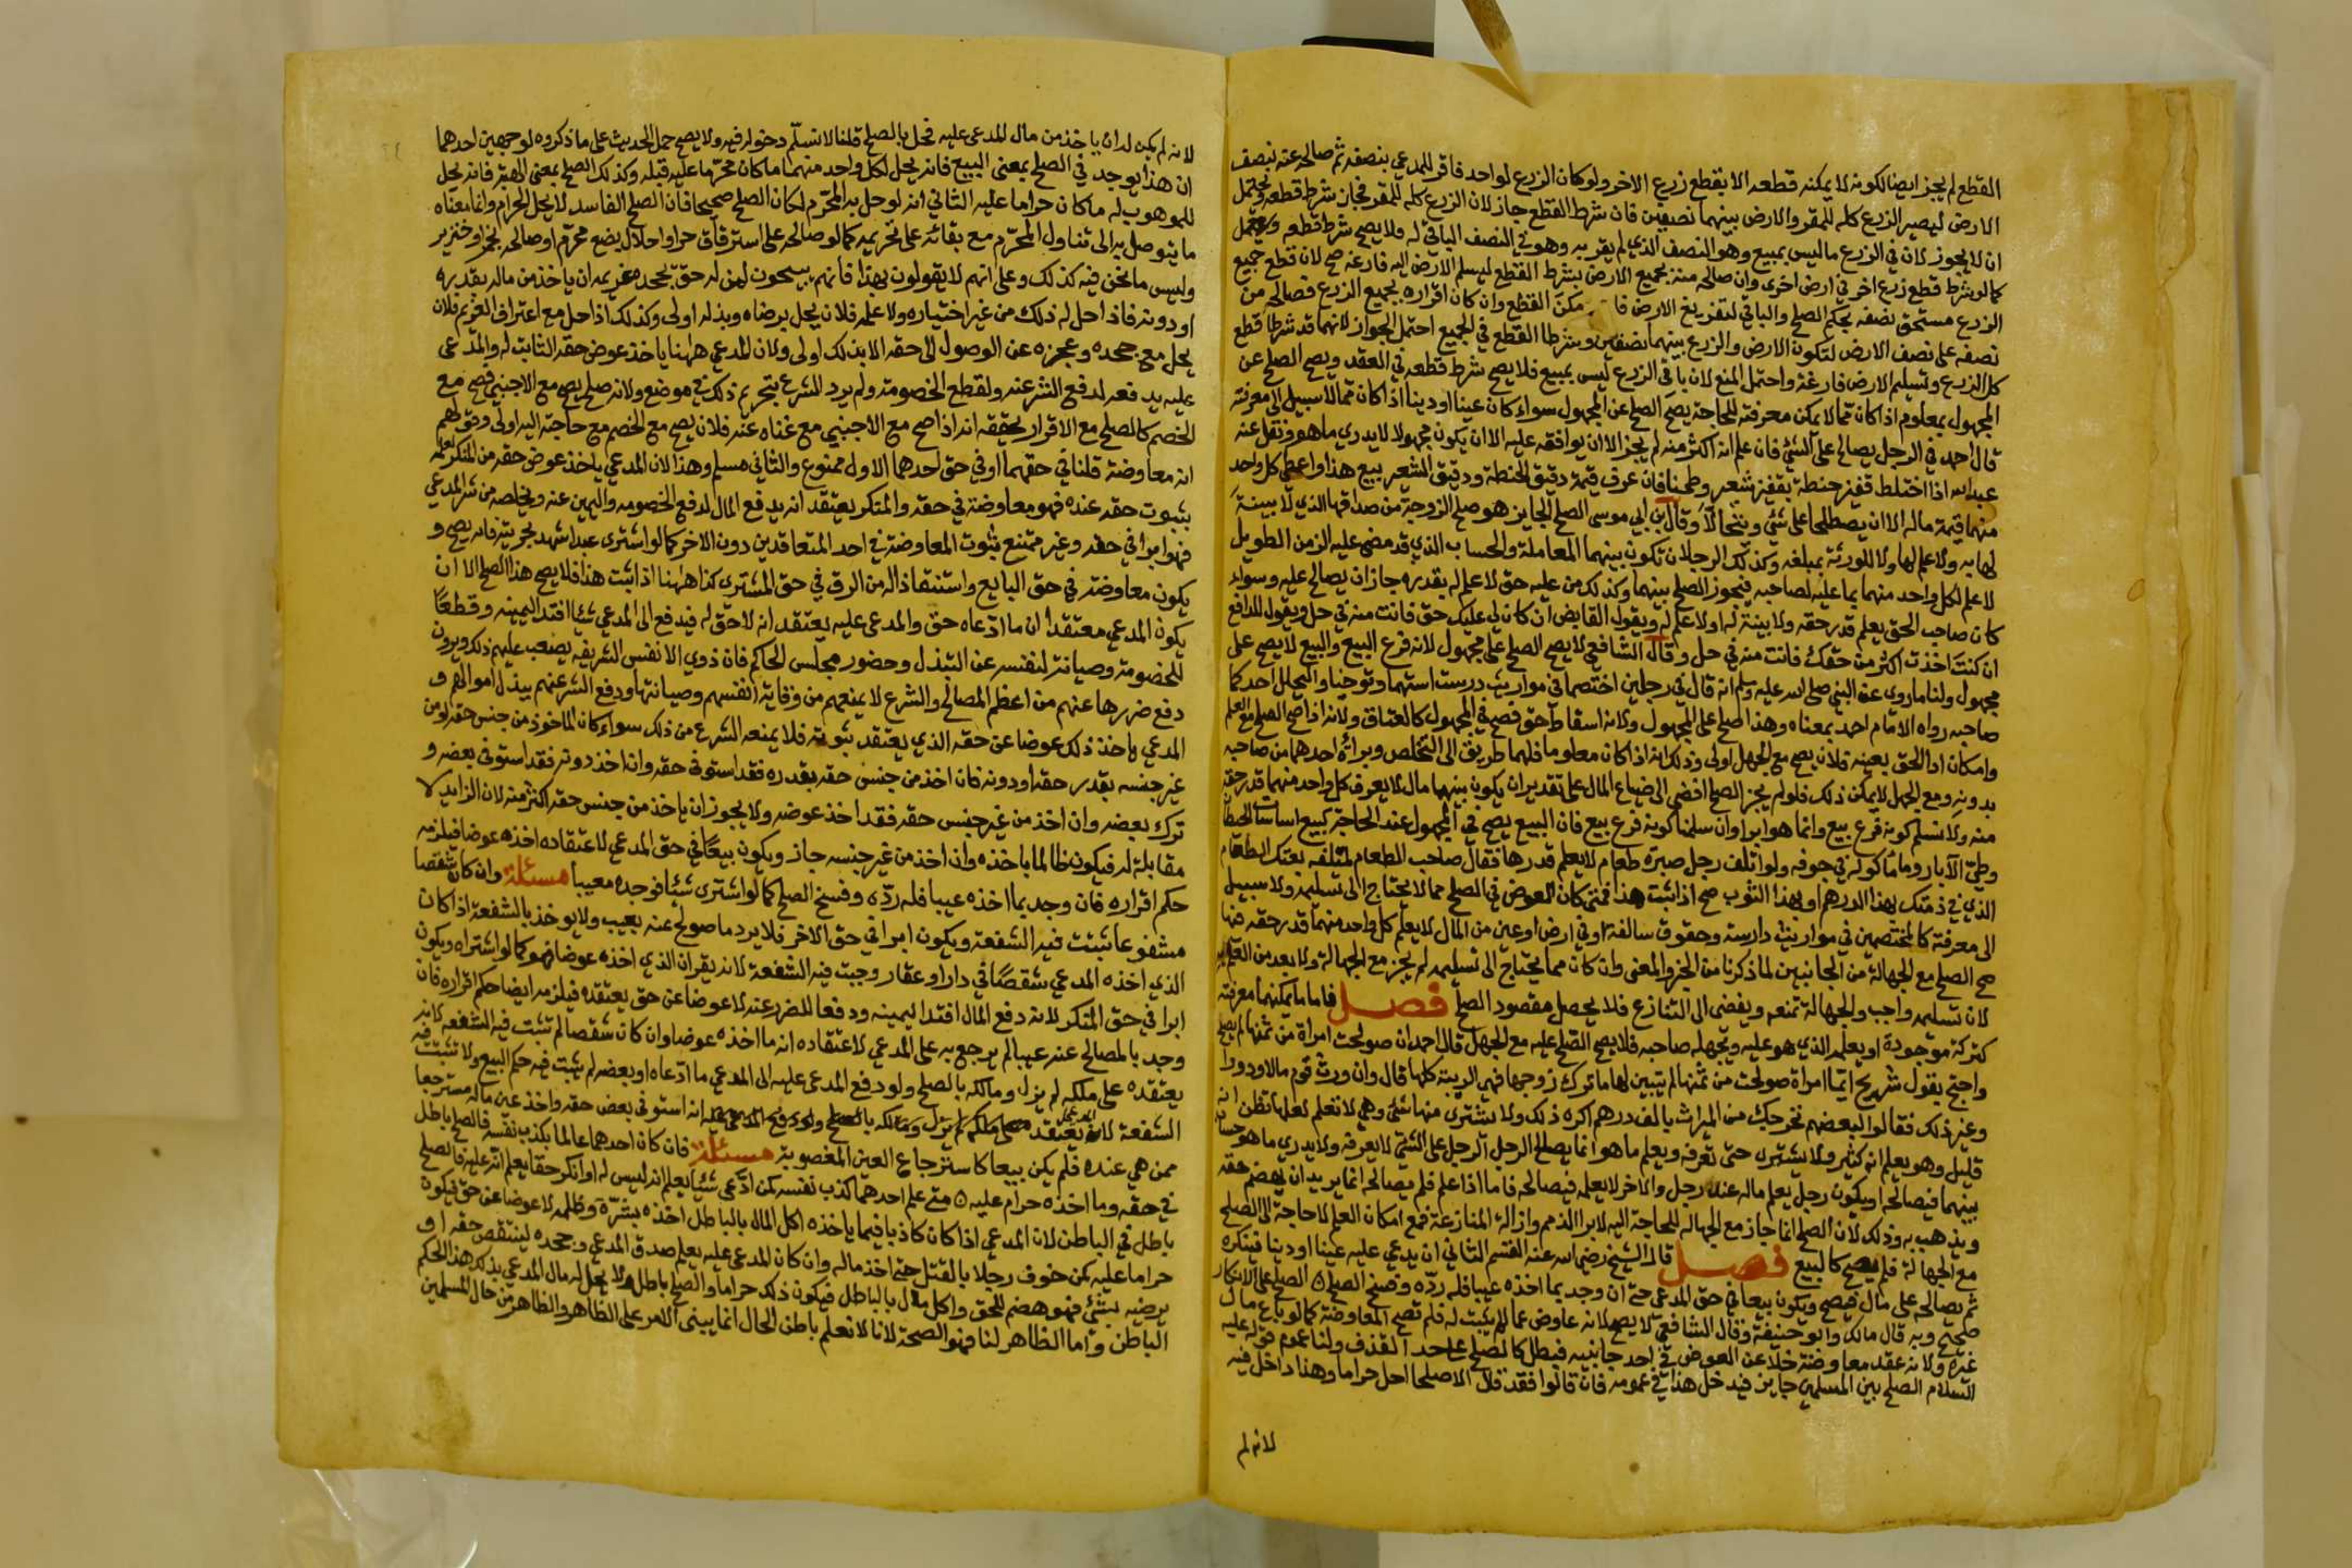 القطع لم يجز ايضا لكونه لا يمكنه قطعه الا بقطع زرع الاخر ولو كان الزرع لواحد فاقر للمدعي بنصفه ثم صالحه عنه بنصف
الارض ليصير الزرع كله للمقر والارض بينهما نصفين فان شرط القطع جاز لان الزرع كله للمقر فجاز شرط قطعه ويحتمل
ان لا يجوز لان في الزرع ما ليس بمبيع وهو النصف الذي لم يقر به وهو في النصف الباقي له ولا يصح شرط قطعه
كما لو شرط قطع زرع اخر في ارض اخرى وان صالحه منه بجميع الارض بشرط القطع ليسلم الارض اليه فارغه صح لان قطع جميع
الزرع مستحق نصفه بحكم الصلح والباقي لتفريغ الارض مكن القطع وان كان اقراره بجميع الزرع فصالحه من
نصفه على نصف الارض لتكون الارض والزرع بينهما نصفين وشرطا القطع في الجميع احتمل الجواز لانهما قد شرطا قطع
كل الزرع وتسليم الارض فارغة واحتمل المنع لان باقي الزرع ليس بمبيع فلا يصح شرط قطعه في العقد ويصح الصلح عن
المجهول بمعلوم اذا كان مما لا يمكن معرفته للحاجة يصح الصلح عن المجهول سواء كان عينا او دينا اذا كان مما لا سبيل الى معرفته
قال احمد في الرجل يصالح على الشئ فان علم انه اكثر منه لم يجز الا ان يوافقه عليه الا ان يكون مجهولا لا يدري ما هو ونقل عنه
عبد الله اذا اختلط قفيز حنطة بقفيز شعير وطحنا فان عرف قيمة دقيق الحنطة ودقيق الشعير بيع هذا واعطي كل واحد
منهما قيمة ماله الا ان يصطلحا على شئ ويتحالا وقال ابن ابي موسى الصلح الجايز هو صلح الزوجة من صداقها الذي لا بينة
لها به ولا علم لها ولا للورثة بمبلغه وكذلك الرجلان تكون بينهما المعاملة والحساب الذي قد مضى عليه الزمن الطويل
لا علم لكل واحد منهما بما عليه لصاحبه فيجوز الصلح بينهما وكذلك من عليه حق لا علم له بقدره جاز ان يصالح عليه وسواء
كان صاحب الحق يعلم قدر حقه ولا بينة له او لا علم له ويقول القابض ان كان لي عليك حق فانت منه في حل ويقول الدافع
ان كنت اخذت اكثر من حقك فانت منه في حل وقال الشافعي لا يصح الصلح على مجهول لانه فرع البيع والبيع لا يصح على
مجهول ولنا ما روى عن النبي صلى الله عليه وسلم انه قال في رجلين اختصما في مواريث درست استهما وتوخيا وليحلل احدكما
صاحبه رواه الامام احمد بمعناه وهذا صلح على المجهول ولانه اسقاط حق فصح في المجهول كالعتاق ولانه اذا صح الصلح مع العلم
وامكان ادا الحق بعينه فلان يصح مع الجهل اولى وذلك انه اذا كان معلوما فلهما طريق الى التخلص وبراة احدهما من صاحبه
بدونه ومع الجهل لا يمكن ذلك فلو لم يجز الصلح افضى الى ضياع المال على تقدير ان يكون بينهما مال لا يعرف كل واحد منهما قدر حقه
منه ولا نسلم كونه فرع بيع وانما هو ابرا وان سلمنا كونه فرع بيع فان البيع يصح في المجهول عند الحاجة كبيع اساسات الحيطان
وطي الآبار وما ماكوله في جوفه ولو اتلف رجل صبرة طعام لا يعلم قدرها فقال صاحب الطعام لمتلفه بعتك الطعام
الذي في ذمتك بهذا الدرهم او بهذا الثوب صح اذا ثبت هذا فمتى كان العوض في الصلح مما لا يحتاج الى تسليمه ولا سبيل
الى معرفته كالمختصمين في مواريث دارسة وحقوق سالفة او في ارض او عين من المال لا يعلم كل واحد منهما قدر حقه منها
صح الصلح مع الجهالة من الجانبين لما ذكرنا من الخبر والمعنى وان كان مما يحتاج الى تسليمه لم يجز مع الجهالة ولا بد من العلم به
لان تسليمه واجب والجهالة تمنعه ويفضى الى التنازع فلا يحصل مقصود الصلح فصل فاما ما يمكنهما معرفته
كتركة موجودة او يعلمه الذي هو عليه ويجهله صاحبه فلا يصح الصلح عليه مع الجهل قال احمد ان صولحت امراة من ثمنها لم يصح
واحتج بقول شريح ايما امراة صولحت من ثمنها لم يتبين لها ما ترك زوجها فهي الريبة كلها قال وان ورث قوم مالا ودورا
وغير ذلك فقالوا لبعضهم نخرجك من الميراث بالف درهم اكره ذلك ولا يشترى منها شئ وهي لا تعلم لعلها تظن انه
قليل وهو يعلم انه كثير ولا يشترى حتى تعرفه ويعلم ما هو انما يصالح الرجل الرجل على الشئ لا يعرفه ولا يدري ما هو حساب
بينهما فيصالحه او يكون رجل يعلم ماله عند رجل والاخر لا يعلمه فيصالحه فاما اذا علم فلم يصالحه انما يريد ان يهضم حقه
ويذهب به وذلك لان الصلح انما جاز مع الجهاله للحاجة اليه لابرا الذمم وازالة المنازعة فمع امكان العلم لا حاجة الى الصلح
مع الجهالة فلم يصح كالبيع فصل قال الشيخ رضي الله عنه القسم الثاني ان يدعي عليه عينا او دينا فينكره
ثم يصالحه على مال فيصح ويكون بيعا في حق المدعي حتى ان وجد بما اخذه عيبا فله رده وفسخ الصلح ه الصلح على الانكار
صحيح وبه قال مالك وابو حنيفة وقال الشافعي لا يصح لانه عاوض عما لم يثبت له فلم تصح المعاوضة كما لو باع مال
غيره ولانه عقد معاوضة خلا عن العوض في احد جانبيه فبطل كالصلح على حد القذف ولنا عموم قوله عليه
السلام الصلح بين المسلمين جايز فيدخل هذا في عمومه فان قالوا فقد قال الا صلحا احل حراما وهذا داخل فيه
لانه لم
لانه لم يكن له ان ياخذ من مال المدعى عليه فحل بالصلح قلنا لا نسلم دخوله فيه ولا يصح حمل الحديث على ما ذكروه لوجهين احدهما
ان هذا يوجد في الصلح بمعنى البيع فانه يحل لكل واحد منهما ما كان محرما عليه قبله وكذلك الصلح بمعنى الهبة فانه يحل
للموهوب له ما كان حراما عليه الثاني انه لو حل به المحرم لكان الصلح صحيحا فان الصلح الفاسد لا يحل الحرام وانما معناه
ما يتوصل به الى تناول المحرم مع بقائه على تحريمه كما لو صالحه على استرقاق حر او احلال بضع محرم او صالحه بخمر او خنزير
وليس ما نحن فيه كذلك وعلى انهم لا يقولون بهذا فانهم يبيحون لمن له حق يجحده غريمه ان ياخذ من ماله بقدره
او دونه فاذا حل له ذلك من غير اختياره ولا علمه فلان يحل برضاه وبذله اولى وكذلك اذا حل مع اعتراف الغريم فلان
يحل مع جحده وعجزه عن الوصول الى حقه الا بذلك اولى ولان المدعي ههنا ياخذ عوض حقه الثابت له والمدعى
عليه يدفعه لدفع الشر عنه ولقطع الخصومة ولم يرد الشرع بتحريم ذلك في موضع ولانه صلح يصح مع الاجنبي فصح مع
الخصم كالصلح مع الاقرار يحققه انه اذا صح مع الاجنبي مع غناه عنه فلان يصح مع الخصم مع حاجته اليه اولى وقولهم
انه معاوضة قلنا في حقهما او في حق احدهما الاول ممنوع والثاني مسلم وهذا لان المدعي ياخذ عوض حقه من المنكر لعلمه
بثبوت حقه عنده فهو معاوضة في حقه والمنكر يعتقد انه يدفع المال لدفع الخصومه واليمين عنه ويخلصه من شر المدعي
فهو ابرا في حقه وغير ممتنع ثبوت المعاوضة في احد المتعاقدين دون الاخر كما لو اشترى عبدا شهد بحريته فانه يصح و
يكون معاوضة في حق البايع واستنقاذا له من الرق في حق المشتري كذا ههنا اذا ثبت هذا فلا يصح هذا الصلح الا ان
يكون المدعي معتقدا ان ما ادعاه حق والمدعى عليه يعتقد انه لا حق له فيدفع الى المدعي شيئا افتدا ليمينه وقطعا
للخصومة وصيانة لنفسه عن التبذل وحضور مجلس الحاكم فان ذوي الانفس الشريفة يصعب عليهم ذلك ويرون
دفع ضررها عنهم من اعظم المصالح والشرع لا يمنعهم من وقاية انفسهم وصيانتها ودفع الشر عنهم ببذل اموالهم و
المدعي ياخذ ذلك عوضا عن حقه الذي يعتقد ثبوته فلا يمنعه الشرع من ذلك سواء كان الماخوذ من جنس حقه او من
غير جنسه بقدر حقه او دونه فان اخذ من جنس حقه بقدره فقد استوفى حقه وان اخذ دونه فقد استوفى بعضه و
ترك بعضه وان اخذ من غير جنس حقه فقد اخذ عوضه ولا يجوز ان ياخذ من جنس حقه اكثر منه لان الزايد لا
مقابلة له فيكون ظالما باخذه وان اخذ من غير جنسه جاز ويكون بيعا في حق المدعي لاعتقاده اخذه عوضا فيلزمه
حكم اقراره فان وجد بما اخذه عيبا فله رده وفسخ الصلح كما لو اشترى شيئا فوجده معيبا مسئلة وان كان شقصا
مشفوعا ثبتت فيه الشفعة ويكون ابرا في حق الاخر فلا يرد ما صولح عنه بعيب ولا يوخذ بالشفعة اذا كان
الذي اخذه المدعي شقصا في دار او عقار وجبت فيه الشفعة لانه يقر ان الذي اخذه عوضا فهو كما لو اشتراه ويكون
ابرا في حق المنكر لانه دفع المال افتدا ليمينه ودفعا للضرر عنه لا عوضا عن حق يعتقده فيلزمه ايضا حكم اقراره فان
وجد بالمصالح عنه عيبا لم يرجع به على المدعي لاعتقاده انه ما اخذه عوضا وان كان شقصا لم تثبت فيه الشفعه لانه
يعتقده على ملكه لم يزل وما ملكه بالصلح ولو دفع المدعى عليه الى المدعي ما ادعاه او بعضه لم يثبت فيه حكم البيع ولا تثبت فيه
الشفعة لان المدعي يعتقد انه استوفى بعض حقه واخذ عين ماله مسترجعا
ممن هي عنده فلم يكن بيعا كاسترجاع العين المغصوبة مسئلة فان كان احدهما عالما بكذب نفسه فالصلح باطل
في حقه وما اخذه حرام عليه ه متى علم احدهما كذب نفسه كمن ادعى شيئا يعلم انه ليس له او انكر حقا يعلم انه عليه فالصلح
باطل في الباطن لان المدعي اذا كان كاذبا فيما ياخذه اكل المال بالباطل اخذه بشره وظلمه لا عوضا عن حق فيكون
حراما عليه كمن خوف رجلا بالقتل حتى اخذ ماله وان كان المدعى عليه يعلم صدق المدعي وجحده لينتقص حقه او
يرضيه بشئ فهو هضم للحق واكل مال بالباطل فيكون ذلك حراما والصلح باطل ولا يحل له مال المدعي بذلك هذا الحكم
الباطن واما الظاهر لنا فهو الصحة لانا لا نعلم باطن الحال انما يبنى الامر على الظاهر والظاهر من حال المسلمين